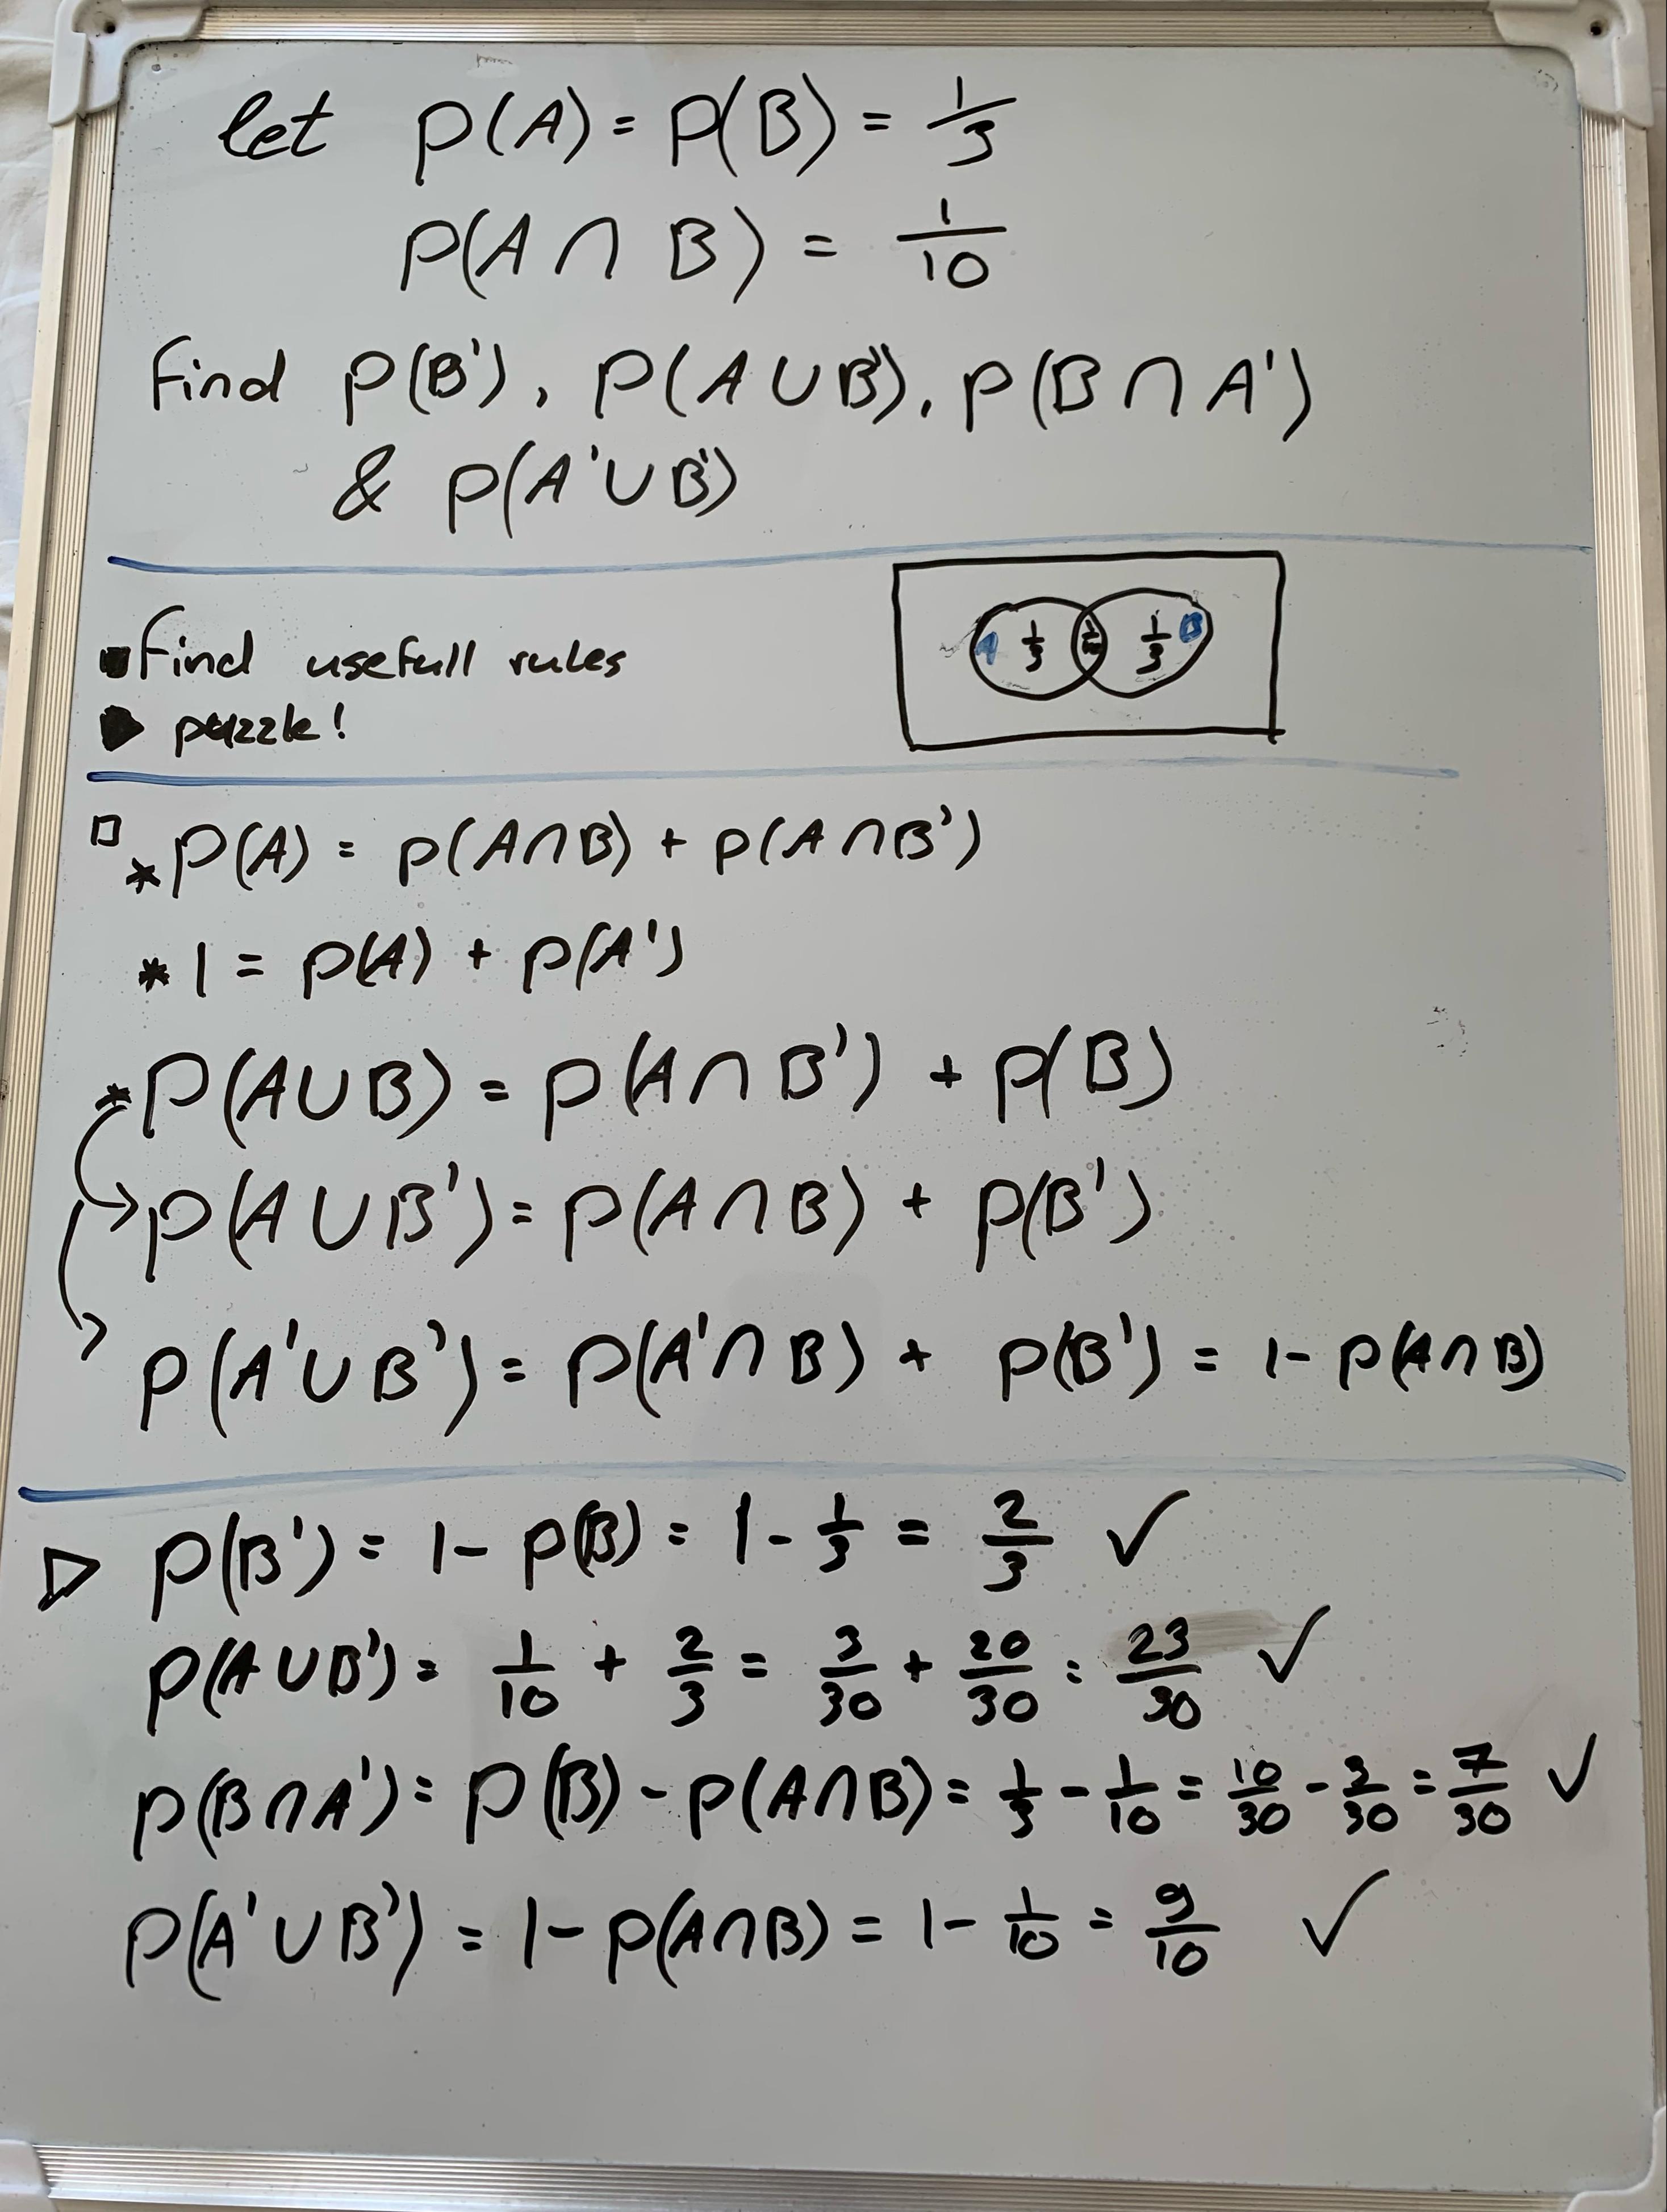 let P(A) = P(B) = 1/3
P(A ∩ B) = 1/10
Find P(B'), P(A ∪ B'), P(B ∩ A')
& P(A' ∪ B')
Find usefull rules
A 1/3 1/10 1/3 B
puzzle!
* P(A) = P(A∩B) + P(A∩B')
* 1 = P(A) + P(A')
* P(A∪B) = P(A∩B') + P(B)
P(A∪B') = P(A∩B) + P(B')
P(A'∪B') = P(A'∩B) + P(B') = 1 - P(A∩B)
P(B') = 1 - P(B) = 1 - 1/3 = 2/3 ✓
P(A∪B') = 1/10 + 2/3 = 3/30 + 20/30 = 23/30 ✓
P(B∩A') = P(B) - P(A∩B) = 1/3 - 1/10 = 10/30 - 3/30 = 7/30 ✓
P(A'∪B') = 1 - P(A∩B) = 1 - 1/10 = 9/10 ✓